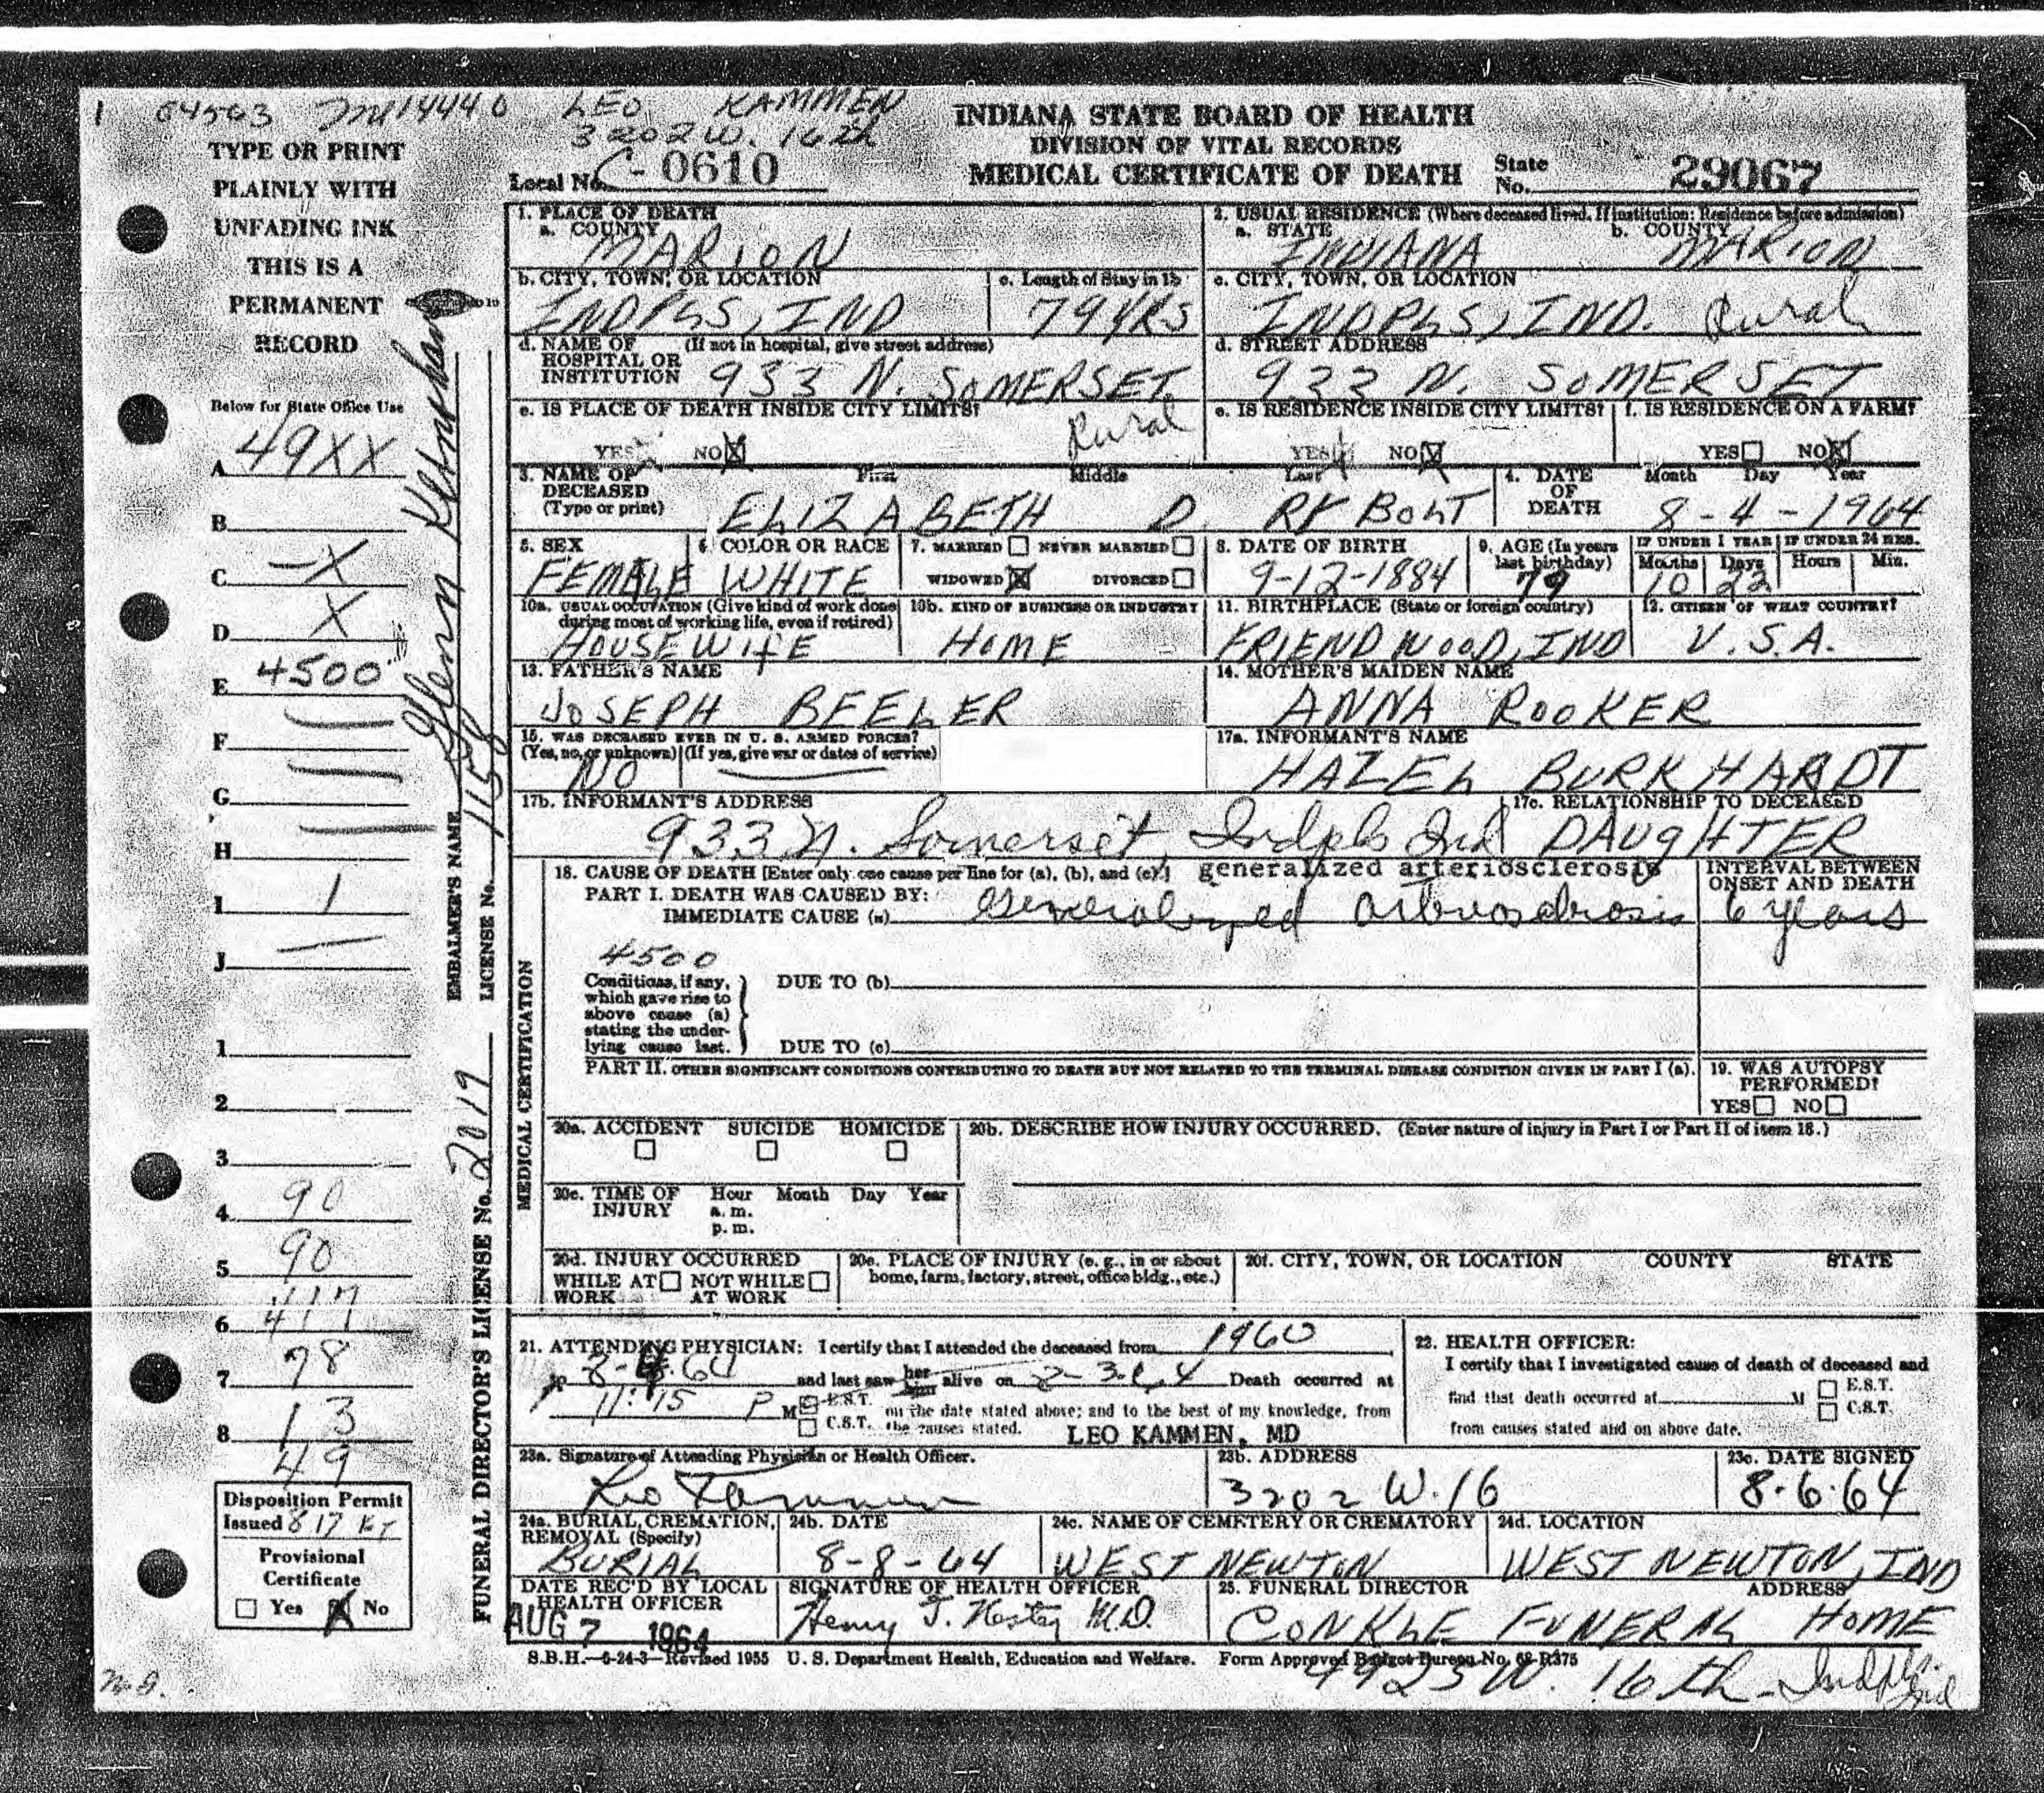 1 64503 LEO KAMMEN
3202 W. 16th
TYPE OR PRINT
PLAINLY WITH
UNFADING INK
THIS IS A
PERMANENT
RECORD
Below for State Office Use
A 49XX
B
C -X
D X
E 4500
F
G
H
I 1
J
1
2
3
4 90
5 90
6 417
7 78
8 13
49
Disposition Permit
Issued 8 17
Provisional
Certificate
Yes No
EMBALMER'S NAME Glenn
LICENSE No. 1158
FUNERAL DIRECTOR'S LICENSE No. 2019
INDIANA STATE BOARD OF HEALTH
DIVISION OF VITAL RECORDS
MEDICAL CERTIFICATE OF DEATH
Local No. C-0610
State No. 29067
1. PLACE OF DEATH
a. COUNTY
MARION
2. USUAL RESIDENCE (Where deceased lived. If institution: Residence before admission)
a. STATE b. COUNTY
INDIANA MARION
b. CITY, TOWN, OR LOCATION c. Length of Stay in 1b
INDPLS, IND 79 YRS
c. CITY, TOWN, OR LOCATION
INDPLS, IND. Rural
d. NAME OF HOSPITAL OR INSTITUTION (If not in hospital, give street address)
933 N. SOMERSET.
d. STREET ADDRESS
933 N. SOMERSET
e. IS PLACE OF DEATH INSIDE CITY LIMITS?
YES NO X Rural
e. IS RESIDENCE INSIDE CITY LIMITS? f. IS RESIDENCE ON A FARM?
YES NO X YES NO X
3. NAME OF DECEASED (Type or print) First Middle Last
ELIZABETH D RYBOLT
4. DATE OF DEATH Month Day Year
8-4-1964
5. SEX
FEMALE
6. COLOR OR RACE
WHITE
7. MARRIED NEVER MARRIED
WIDOWED X DIVORCED
8. DATE OF BIRTH
9-12-1884
9. AGE (In years last birthday)
79
IF UNDER 1 YEAR IF UNDER 24 HRS.
Months Days Hours Min.
10 22
10a. USUAL OCCUPATION (Give kind of work done during most of working life, even if retired)
HOUSEWIFE
10b. KIND OF BUSINESS OR INDUSTRY
HOME
11. BIRTHPLACE (State or foreign country)
FRIENDWOOD, IND
12. CITIZEN OF WHAT COUNTRY?
U.S.A.
13. FATHER'S NAME
JOSEPH BEELER
14. MOTHER'S MAIDEN NAME
ANNA ROOKER
15. WAS DECEASED EVER IN U. S. ARMED FORCES?
(Yes, no, or unknown) (If yes, give war or dates of service)
NO
17a. INFORMANT'S NAME
HAZEL BURKHARDT
17b. INFORMANT'S ADDRESS
933 N. Somerset, Indpls Ind
17c. RELATIONSHIP TO DECEASED
DAUGHTER
MEDICAL CERTIFICATION
18. CAUSE OF DEATH [Enter only one cause per line for (a), (b), and (c).] generalized arteriosclerosis
PART I. DEATH WAS CAUSED BY:
IMMEDIATE CAUSE (a) Generalized arteriosclerosis
INTERVAL BETWEEN ONSET AND DEATH
6 years
4500
Conditions, if any, which gave rise to above cause (a) stating the underlying cause last.
DUE TO (b)
DUE TO (c)
PART II. OTHER SIGNIFICANT CONDITIONS CONTRIBUTING TO DEATH BUT NOT RELATED TO THE TERMINAL DISEASE CONDITION GIVEN IN PART I (a).
19. WAS AUTOPSY PERFORMED?
YES NO
20a. ACCIDENT SUICIDE HOMICIDE
20b. DESCRIBE HOW INJURY OCCURRED. (Enter nature of injury in Part I or Part II of item 18.)
20c. TIME OF INJURY Hour Month Day Year
a. m.
p. m.
20d. INJURY OCCURRED
WHILE AT WORK NOT WHILE AT WORK
20e. PLACE OF INJURY (e. g., in or about home, farm, factory, street, office bldg., etc.)
20f. CITY, TOWN, OR LOCATION COUNTY STATE
21. ATTENDING PHYSICIAN: I certify that I attended the deceased from 1960
to 8-4-64 and last saw her him alive on Death occurred at
11:15 P M E.S.T. C.S.T. on the date stated above; and to the best of my knowledge, from the causes stated.
LEO KAMMEN, MD
22. HEALTH OFFICER:
I certify that I investigated cause of death of deceased and
find that death occurred at M E.S.T. C.S.T.
from causes stated and on above date.
23a. Signature of Attending Physician or Health Officer.
Leo Kammen
23b. ADDRESS
3202 W. 16
23c. DATE SIGNED
8-6-64
24a. BURIAL, CREMATION, REMOVAL (Specify)
BURIAL
24b. DATE
8-8-64
24c. NAME OF CEMETERY OR CREMATORY
WEST NEWTON
24d. LOCATION
WEST NEWTON, IND
DATE REC'D BY LOCAL HEALTH OFFICER
AUG 7 1964
SIGNATURE OF HEALTH OFFICER
Henry J. M.D.
25. FUNERAL DIRECTOR ADDRESS
CONKLE FUNERAL HOME
S.B.H.—6-24-3—Revised 1955 U. S. Department Health, Education and Welfare. Form Approved Budget Bureau No. 68-R375
4925 W. 16th - Indpls. Ind